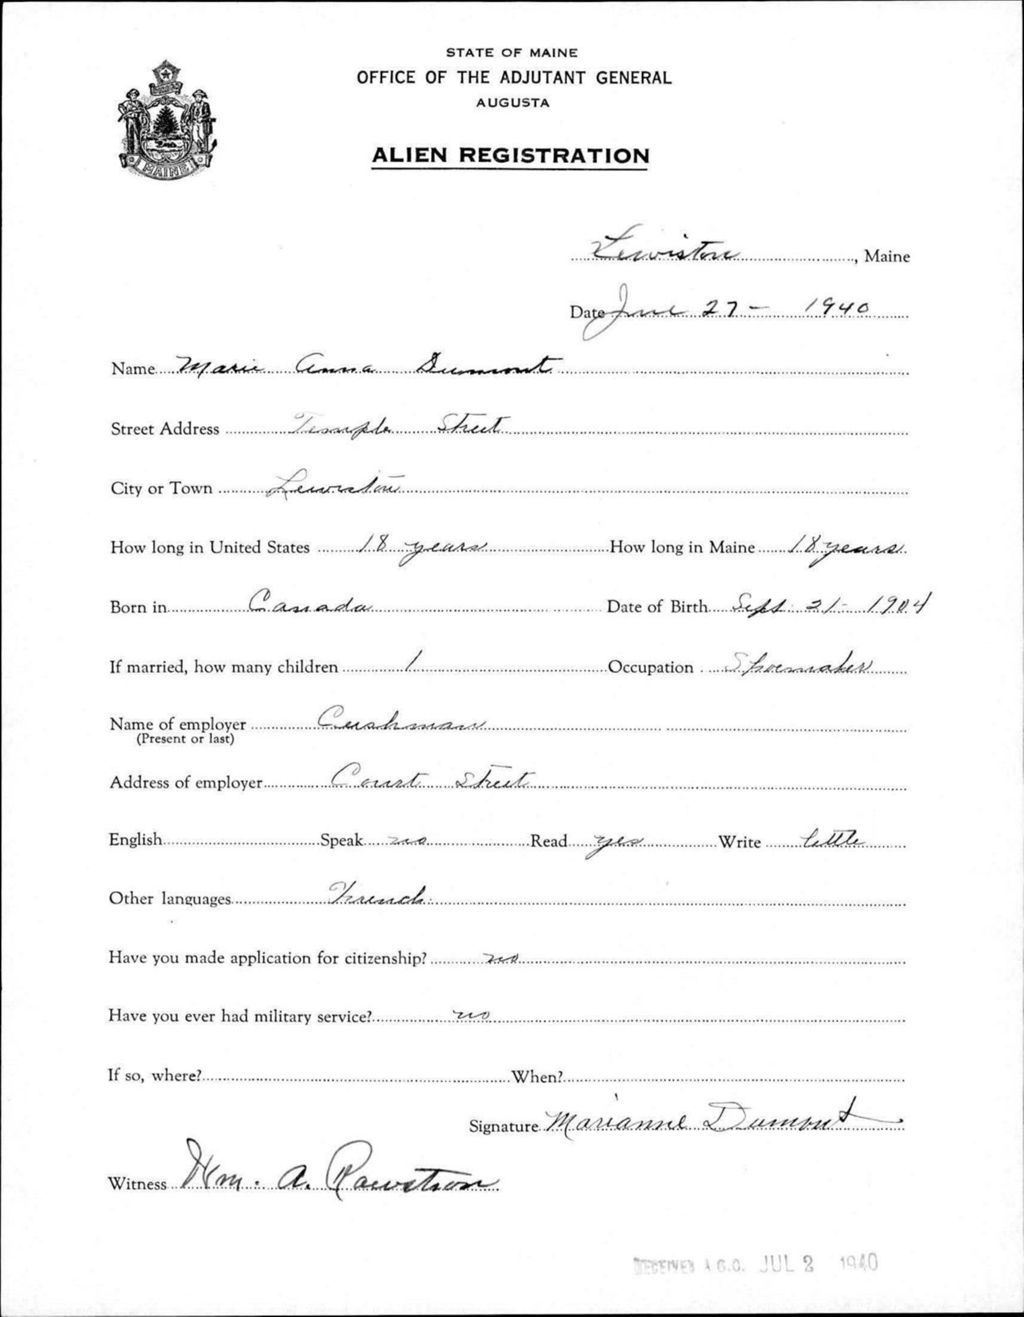 STATE OF MAINE
OFFICE OF THE ADJUTANT GENERAL
AUGUSTA
ALIEN REGISTRATION
MAINE
Lewiston, Maine
Date June 27 - 1940
Name Marie Anna Dumont
Street Address Temple Street
City or Town Lewiston
How long in United States 18 years How long in Maine 18 years
Born in Canada Date of Birth Sept. 21 - 1904
If married, how many children 1 Occupation Shoemaker
Name of employer Cushman
(Present or last)
Address of employer Court Street
English Speak no Read yes Write little
Other languages French
Have you made application for citizenship? no
Have you ever had military service? no
If so, where? When?
Signature Marianne Dumont
Witness Wm. A. Rawstron
RECEIVED A.G.O. JUL 2 1940